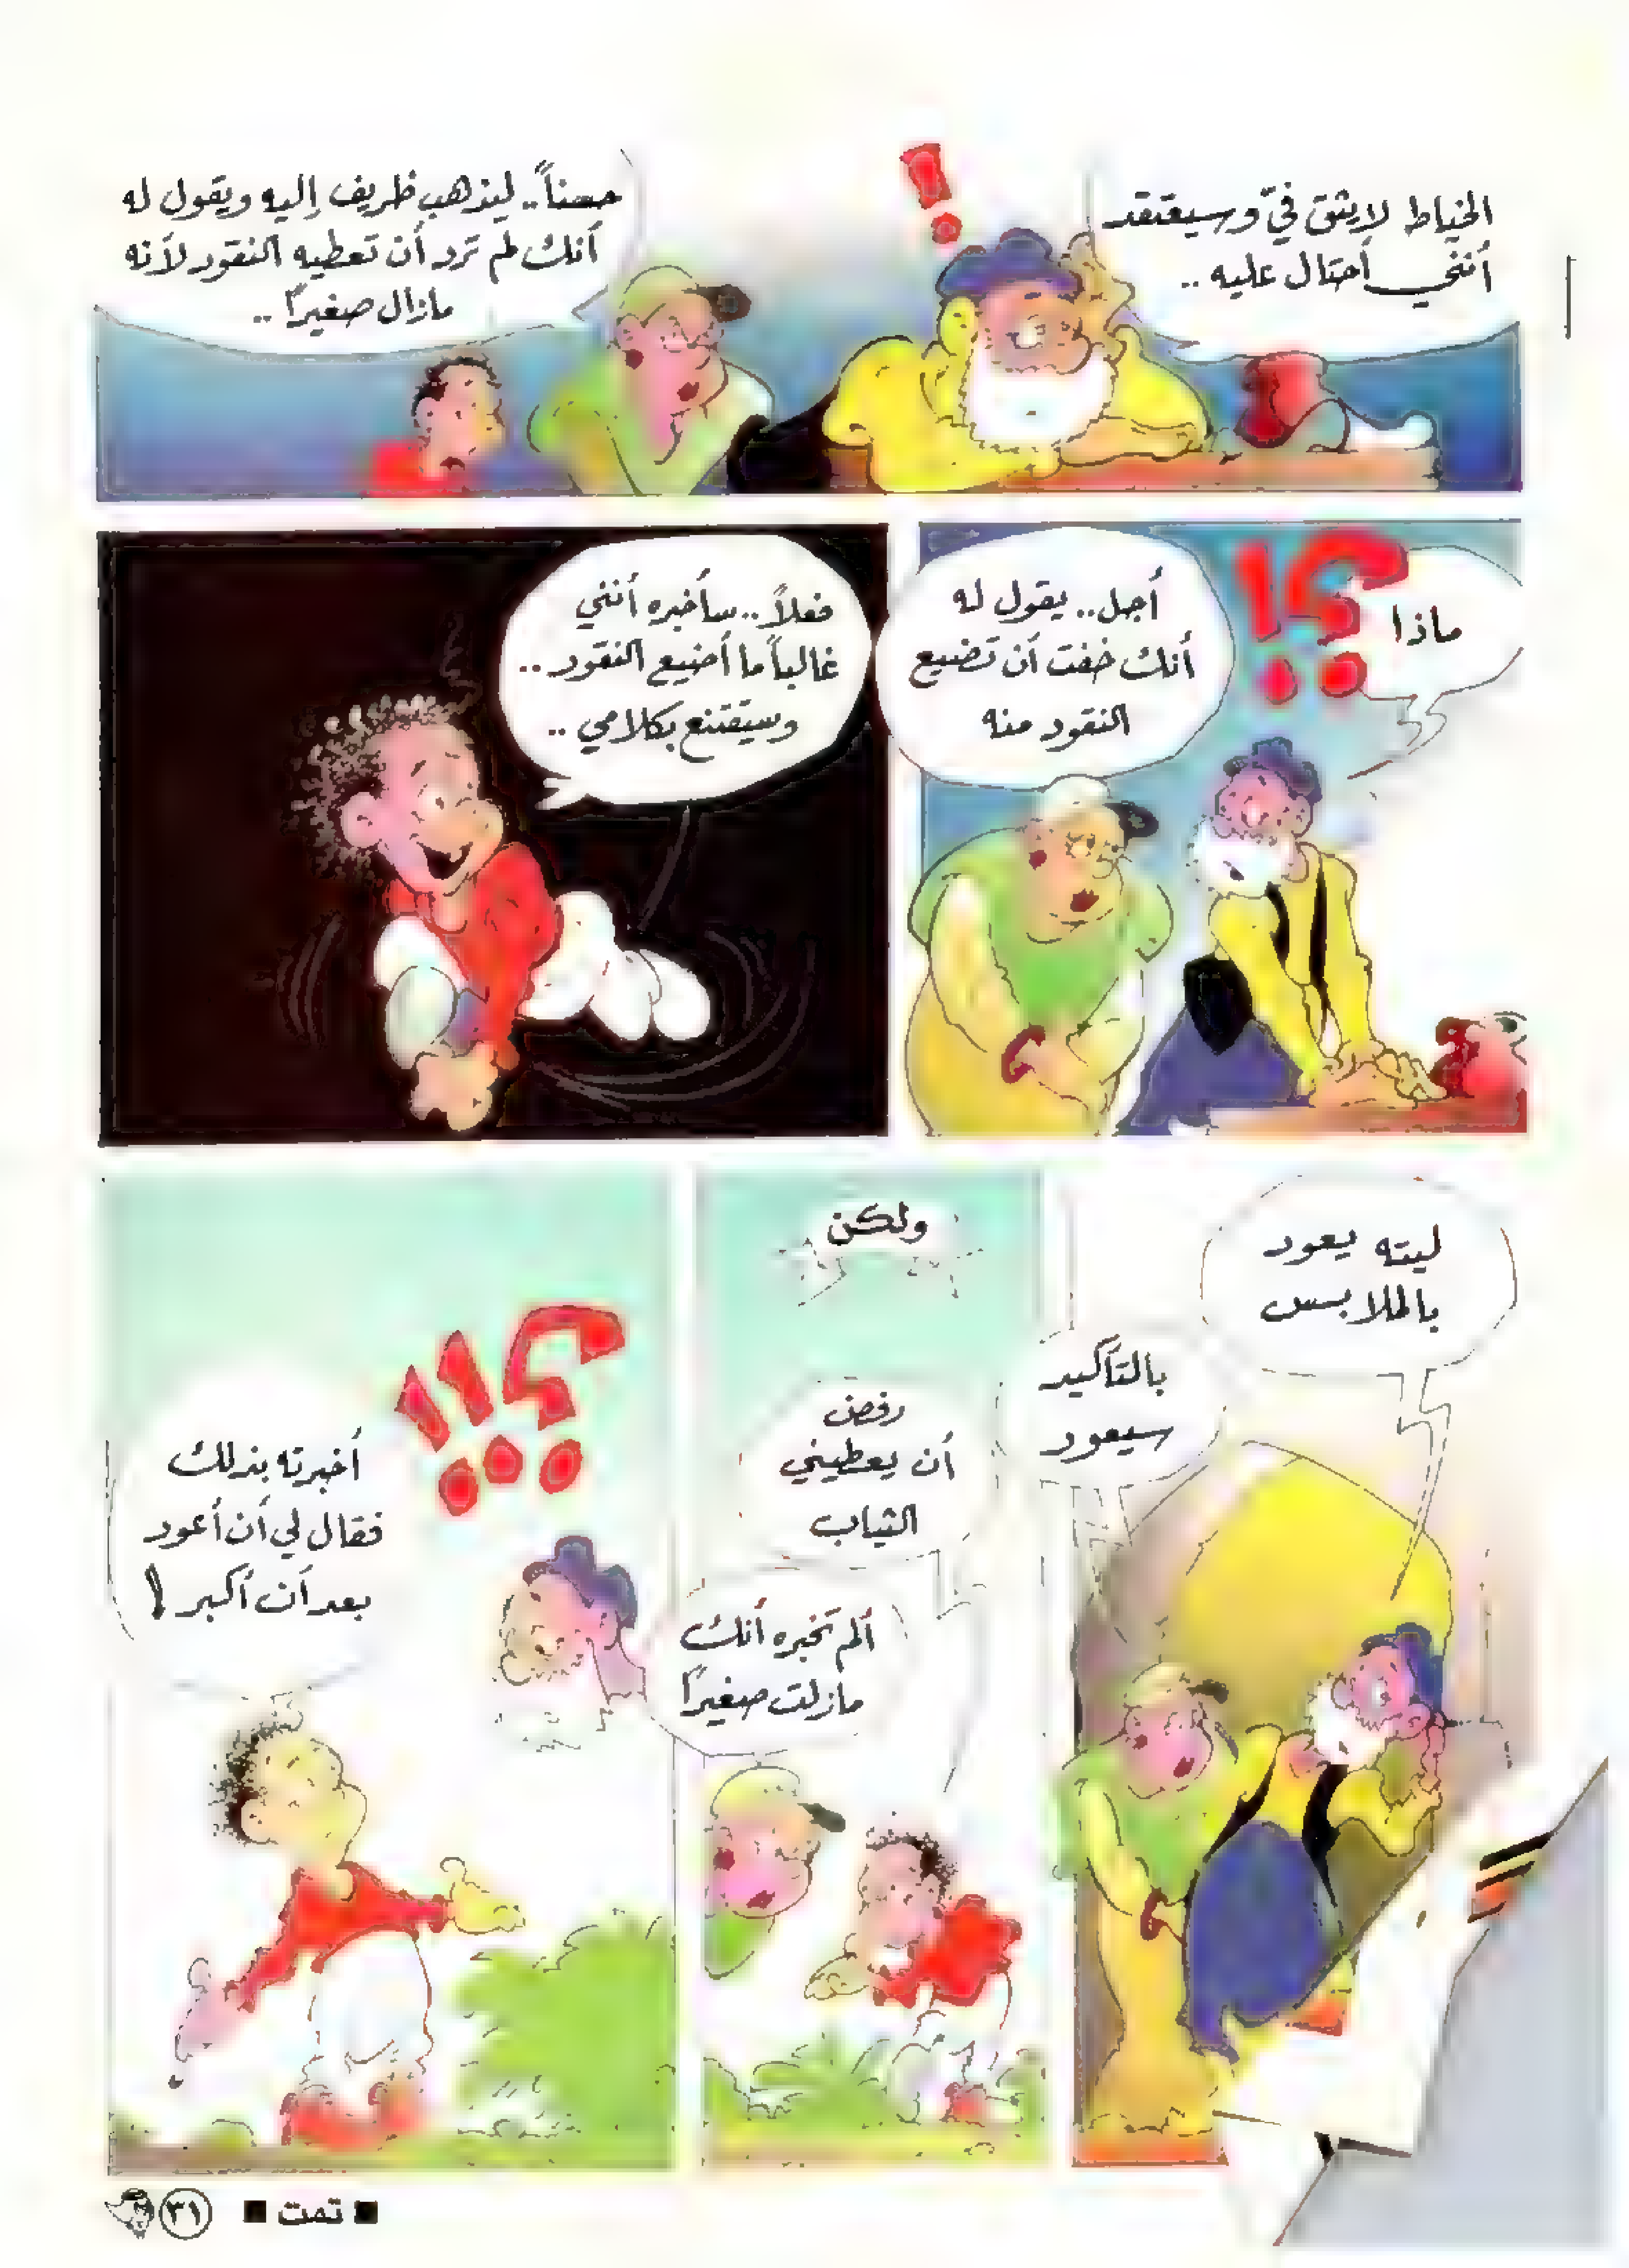 الخياط لا يثق فيّ وسيعتقد
أنني أحتال عليه ..
حسناً .. ليذهب ظريف إليه ويقول له
أنك لم ترد أن تعطيه النقود لأنه
مازال صغيراً ..
ماذا
؟!
أجل .. يقول له
أنك خفت أن تضيع
النقود منه
فعلاً .. سأخبره أنني
غالباً ما أضيع النقود ..
وسيقتنع بكلامي ..
ليته يعود
بالملابس
بالتأكيد
سيعود
ولكن
رفض
أن يعطيني
الثياب
ألم تخبره أنك
مازلت صغيراً
؟!!
أخبرته بذلك
فقال لي أن أعود
بعد أن أكبر !
■ تمت ■
٣١